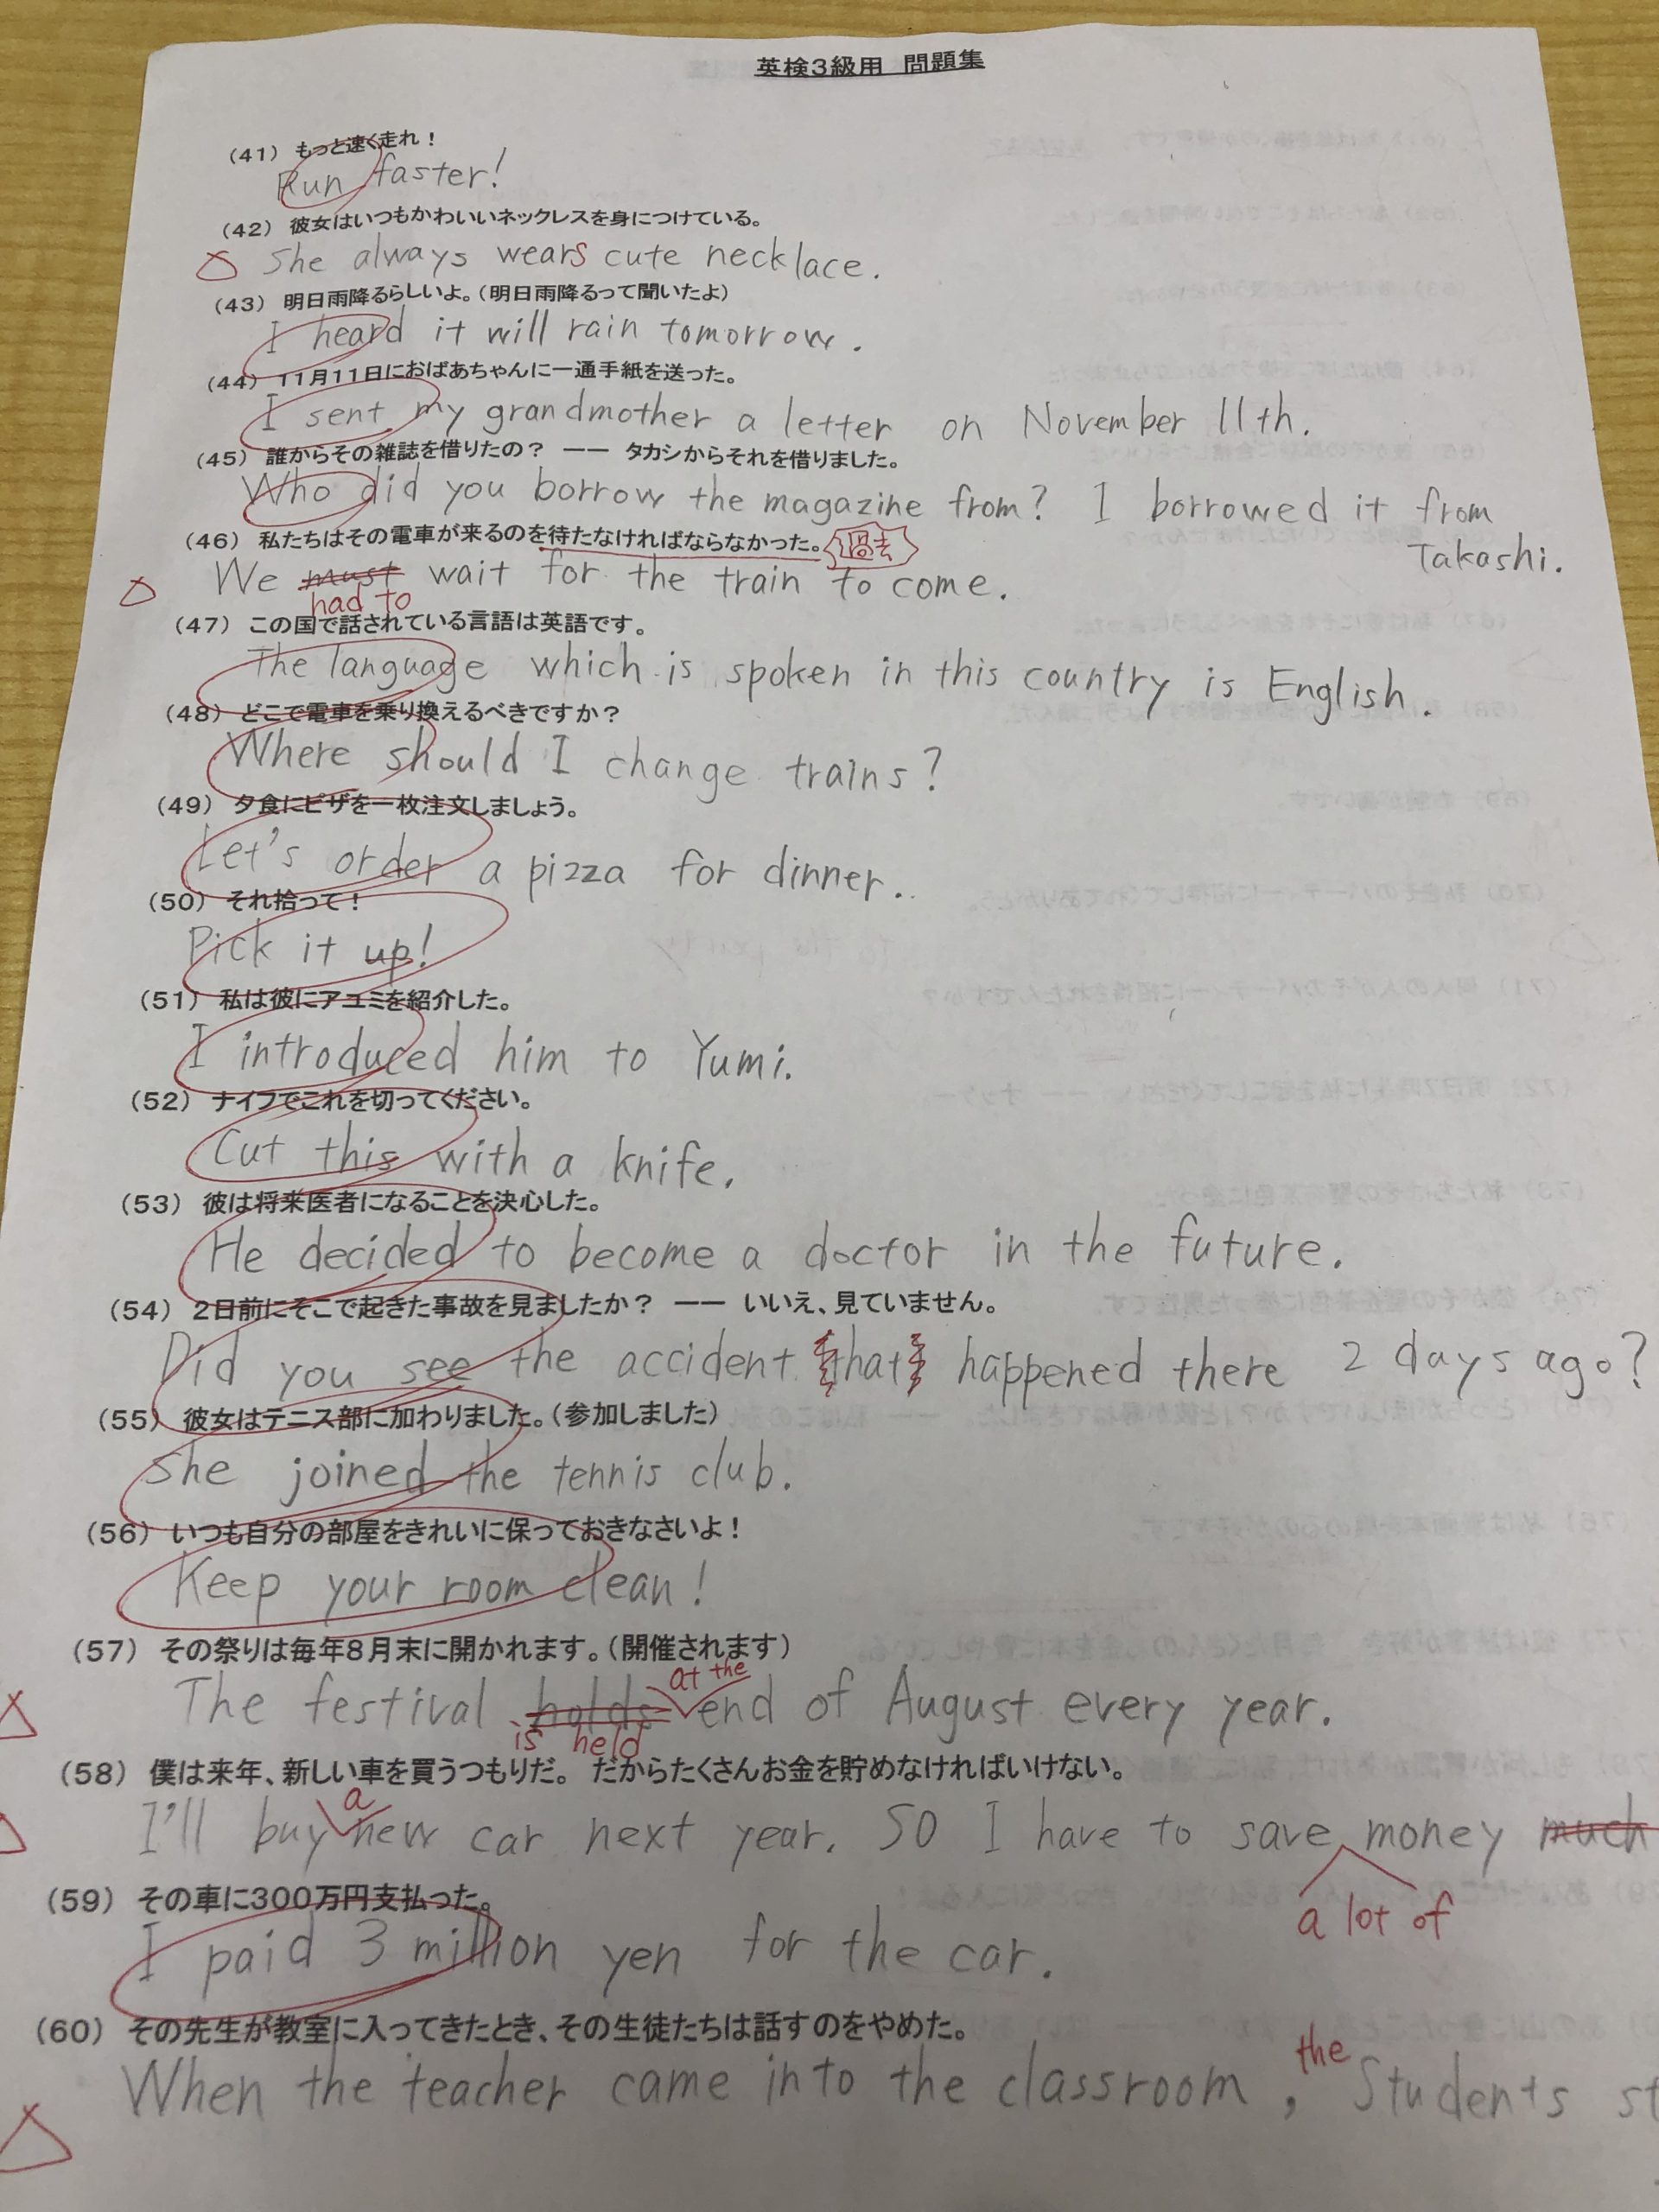 英検3級用 問題集
(41) もっと速く走れ！
Run faster!
(42) 彼女はいつもかわいいネックレスを身につけている。
△ She always wears cute necklace.
(43) 明日雨降るらしいよ。(明日雨降るって聞いたよ)
I heard it will rain tomorrow.
(44) 11月11日におばあちゃんに一通手紙を送った。
I sent my grandmother a letter on November 11th.
(45) 誰からその雑誌を借りたの？ ―― タカシからそれを借りました。
Who did you borrow the magazine from? I borrowed it from
Takashi.
(46) 私たちはその電車が来るのを待たなければならなかった。 過去
△ We must wait for the train to come.
had to
(47) この国で話されている言語は英語です。
The language which is spoken in this country is English.
(48) どこで電車を乗り換えるべきですか？
Where should I change trains?
(49) 夕食にピザを一枚注文しましょう。
Let's order a pizza for dinner.
(50) それ拾って！
Pick it up!
(51) 私は彼にアユミを紹介した。
I introduced him to Yumi.
(52) ナイフでこれを切ってください。
Cut this with a knife.
(53) 彼は将来医者になることを決心した。
He decided to become a doctor in the future.
(54) 2日前にそこで起きた事故を見ましたか？ ―― いいえ、見ていません。
Did you see the accident that happened there 2 days ago?
(55) 彼女はテニス部に加わりました。(参加しました)
She joined the tennis club.
(56) いつも自分の部屋をきれいに保っておきなさいよ！
Keep your room clean!
(57) その祭りは毎年8月末に開かれます。(開催されます)
at the
△ The festival holds end of August every year.
is held
(58) 僕は来年、新しい車を買うつもりだ。 だからたくさんお金を貯めなければいけない。
a
△ I'll buy new car next year. So I have to save money much
a lot of
(59) その車に300万円支払った。
I paid 3 million yen for the car.
(60) その先生が教室に入ってきたとき、その生徒たちは話すのをやめた。
the
△ When the teacher came into the classroom, Students st